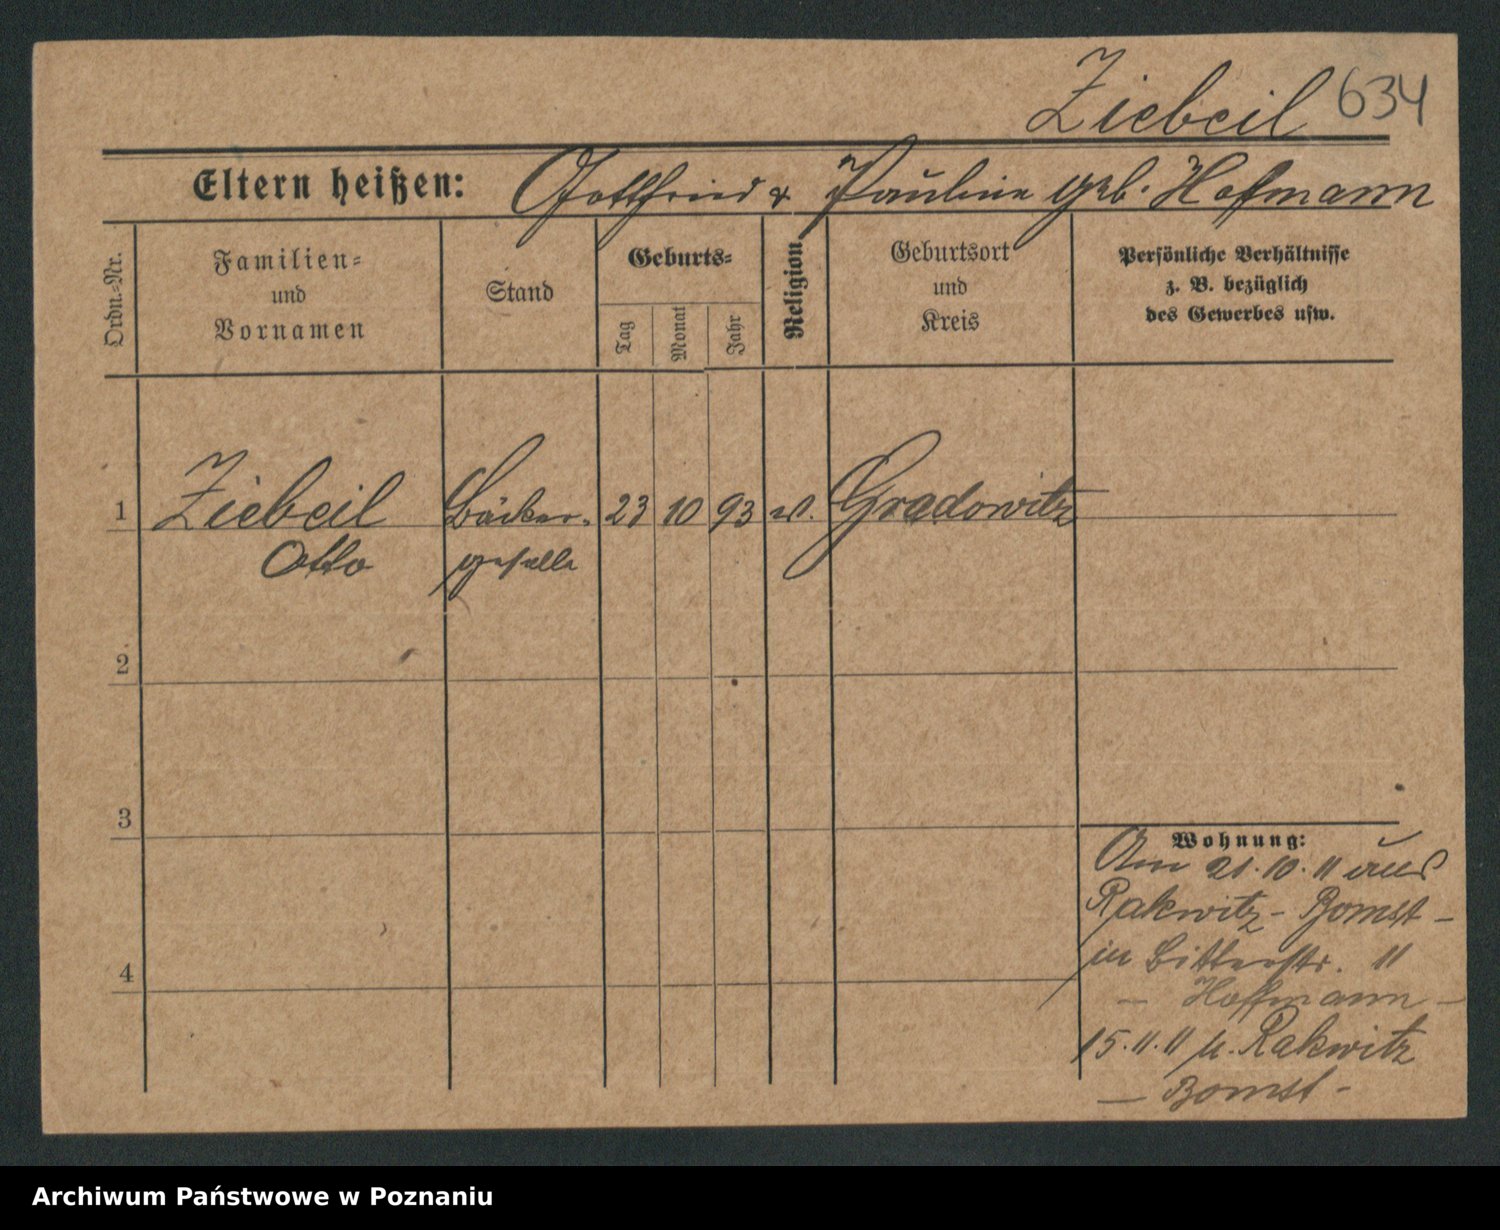 Ziebeil 634
Eltern heißen: Gottfried & Pauline geb. Hoffmann
Ordn.-Nr.
Familien-
und
Vornamen
Stand
Geburts-
Tag
Monat
Jahr
Religion
Geburtsort
und
Kreis
Persönliche Verhältnisse
z. B. bezüglich
des Gewerbes usw.
1 Ziebeil Bäcker- 23 10 93 ev. Gradowitz
Otto geselle
2
3
4
Wohnung:
Am 21.10.11 aus
Rakwitz - Bomst -
in Bitterstr. 11
- Hoffmann -
15.11.11 n. Rakwitz
- Bomst -
Archiwum Państwowe w Poznaniu